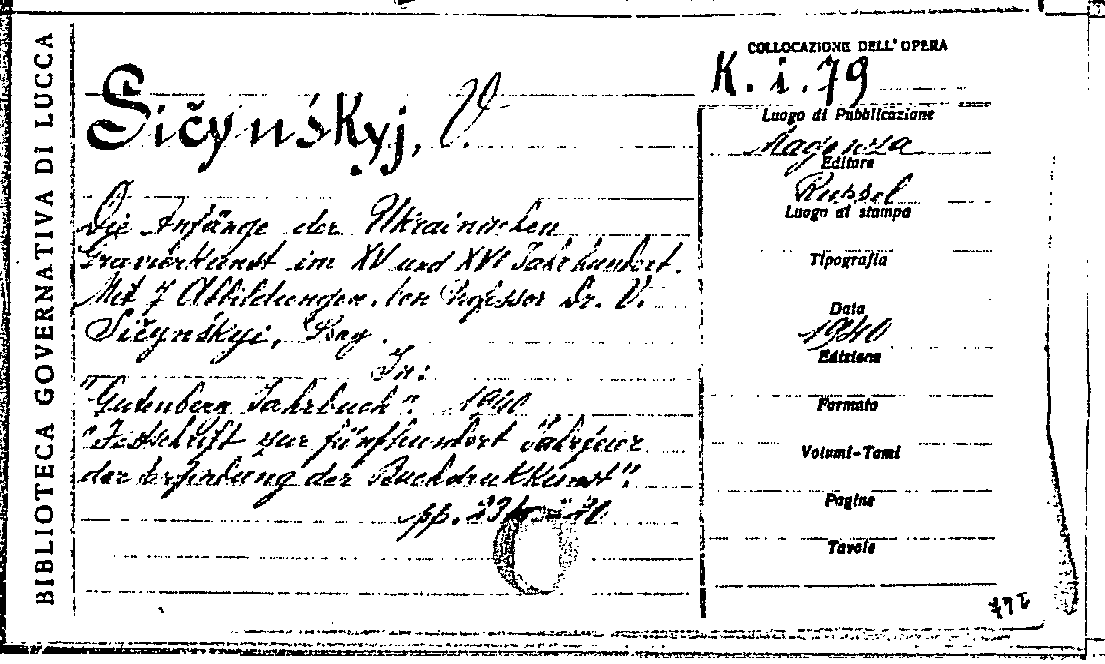 BIBLIOTECA GOVERNATIVA DI LUCCA
Sičynśkyj, V.
Die Anfänge der Ukrainischen
Gravierkunst im XV und XVI Jahrhundert.
Mit 7 Abbildungen. Von Professor Dr. V.
Sičynśkyi, Prag.
In:
"Gutenberg Jahrbuch". 1940
"Festschrift zur fünfhundert Jahrfeier
der Erfindung der Buchdruckkunst".
pp.
COLLOCAZIONE DELL'OPERA
K. i. 79
Luogo di Pubblicazione
Magonza
Editore
Ruppel
Luogo di stampa
Tipografia
Data
1940
Edizione
Formato
Volumi-Tomi
Pagine
Tavole